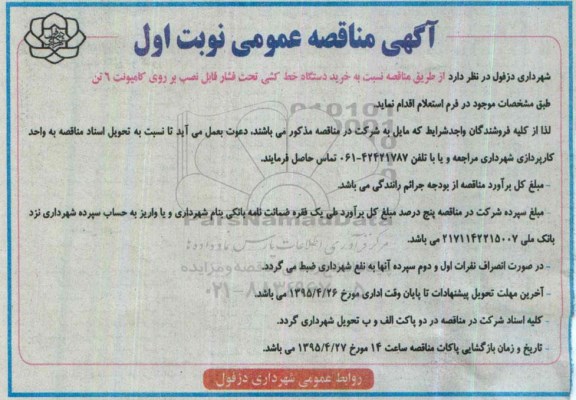 آگهی مناقصه عمومی نوبت اول
شهرداری دزفول در نظر دارد از طریق مناقصه نسبت به خرید دستگاه خط کشی تحت فشار قابل نصب بر روی کامیونت ۶ تن
طبق مشخصات موجود در فرم استعلام اقدام نماید.
لذا از کلیه فروشندگان واجدشرایط که مایل به شرکت در مناقصه مذکور می باشند، دعوت بعمل می آید تا نسبت به تحویل اسناد مناقصه به واحد
کارپردازی شهرداری مراجعه و یا با تلفن ۴۲۴۲۱۷۸۷-۰۶۱ تماس حاصل فرمایند.
- مبلغ کل برآورد مناقصه از بودجه جرائم رانندگی می باشد.
- مبلغ سپرده شرکت در مناقصه پنج درصد مبلغ کل برآورد طی یک فقره ضمانت نامه بانکی بنام شهرداری و یا واریز به حساب سپرده شهرداری نزد
بانک ملی ۲۱۷۱۱۴۲۲۱۵۰۰۷ می باشد.
- در صورت انصراف نفرات اول و دوم سپرده آنها به نفع شهرداری ضبط می گردد.
- آخرین مهلت تحویل پیشنهادات تا پایان وقت اداری مورخ ۱۳۹۵/۴/۲۶ می باشد.
کلیه اسناد شرکت در مناقصه در دو پاکت الف و ب تحویل شهرداری گردد.
- تاریخ و زمان بازگشایی پاکات مناقصه ساعت ۱۴ مورخ ۱۳۹۵/۴/۲۷ می باشد.
روابط عمومی شهرداری دزفول
ParsNamadData